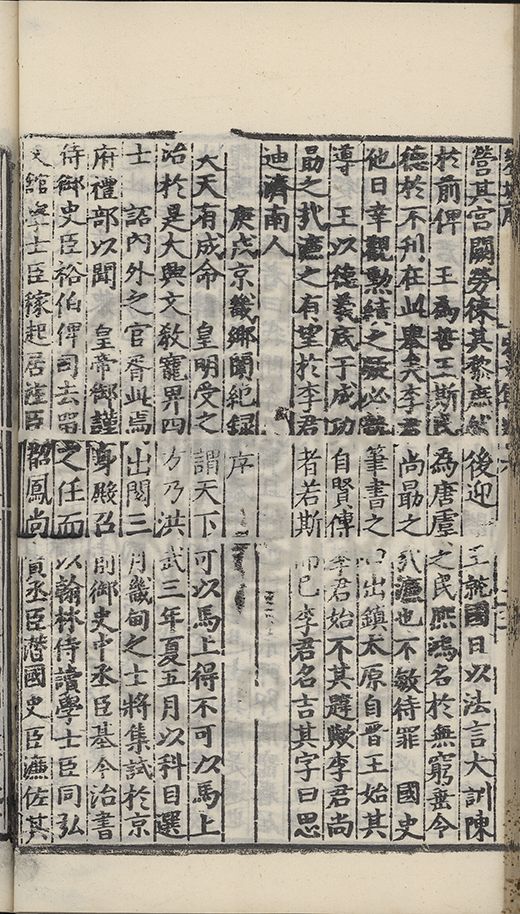 營其宮闕勞徠其黎庶然後迎 王就國日以法言大訓陳
於前俾 王為哲王斯民為唐虞之民熙鴻名於無窮垂令
德於不刊在此舉矣李君尚勗之哉濂也不敏待罪 國史
他日幸觀勳績之必筆書之出鎮太原自晉王始其
導 王以德義底于成功自賢傅李君始不其韙歟李君尚
勗之哉濂之有望於李君者若斯而已李君名吉其字曰思
迪濟南人
庚戌京畿鄉闈紀録序
天有成命 皇明受之謂天下可以馬上得不可以馬上
治於是大興文教寵畀四方乃洪武三年夏五月以科目選
士 詔內外之官胥此焉出閱三月畿甸之士將集試於京
府禮部以聞 皇帝御謹身殿召前御史中丞臣基今治書
侍御史臣裕伯俾司去留之任而以翰林侍讀學士臣同弘
文館學士臣稼起居注臣韶鳳尚寶丞臣潛國史臣濂佐其